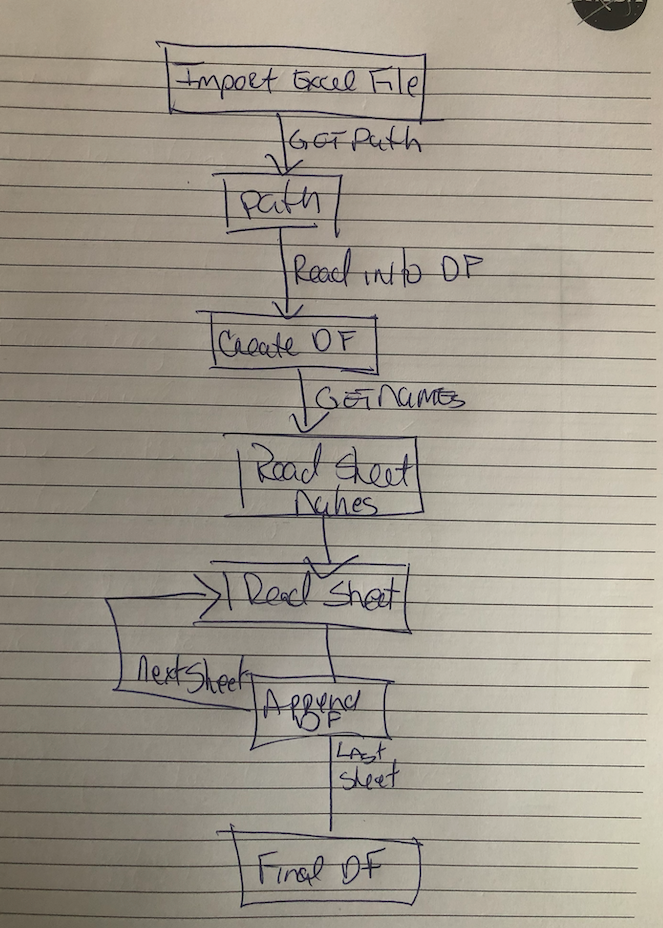 Import Excel File
GET Path
path
Read into DF
Create DF
GET NAMES
Read Sheet
Names
Read Sheet
Next Sheet
Append
DF
Last
Sheet
Final DF